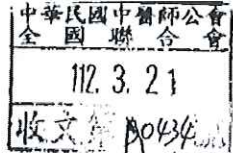 中華民國中醫師公會
全國聯合會
112. 3. 21
收文 A0434